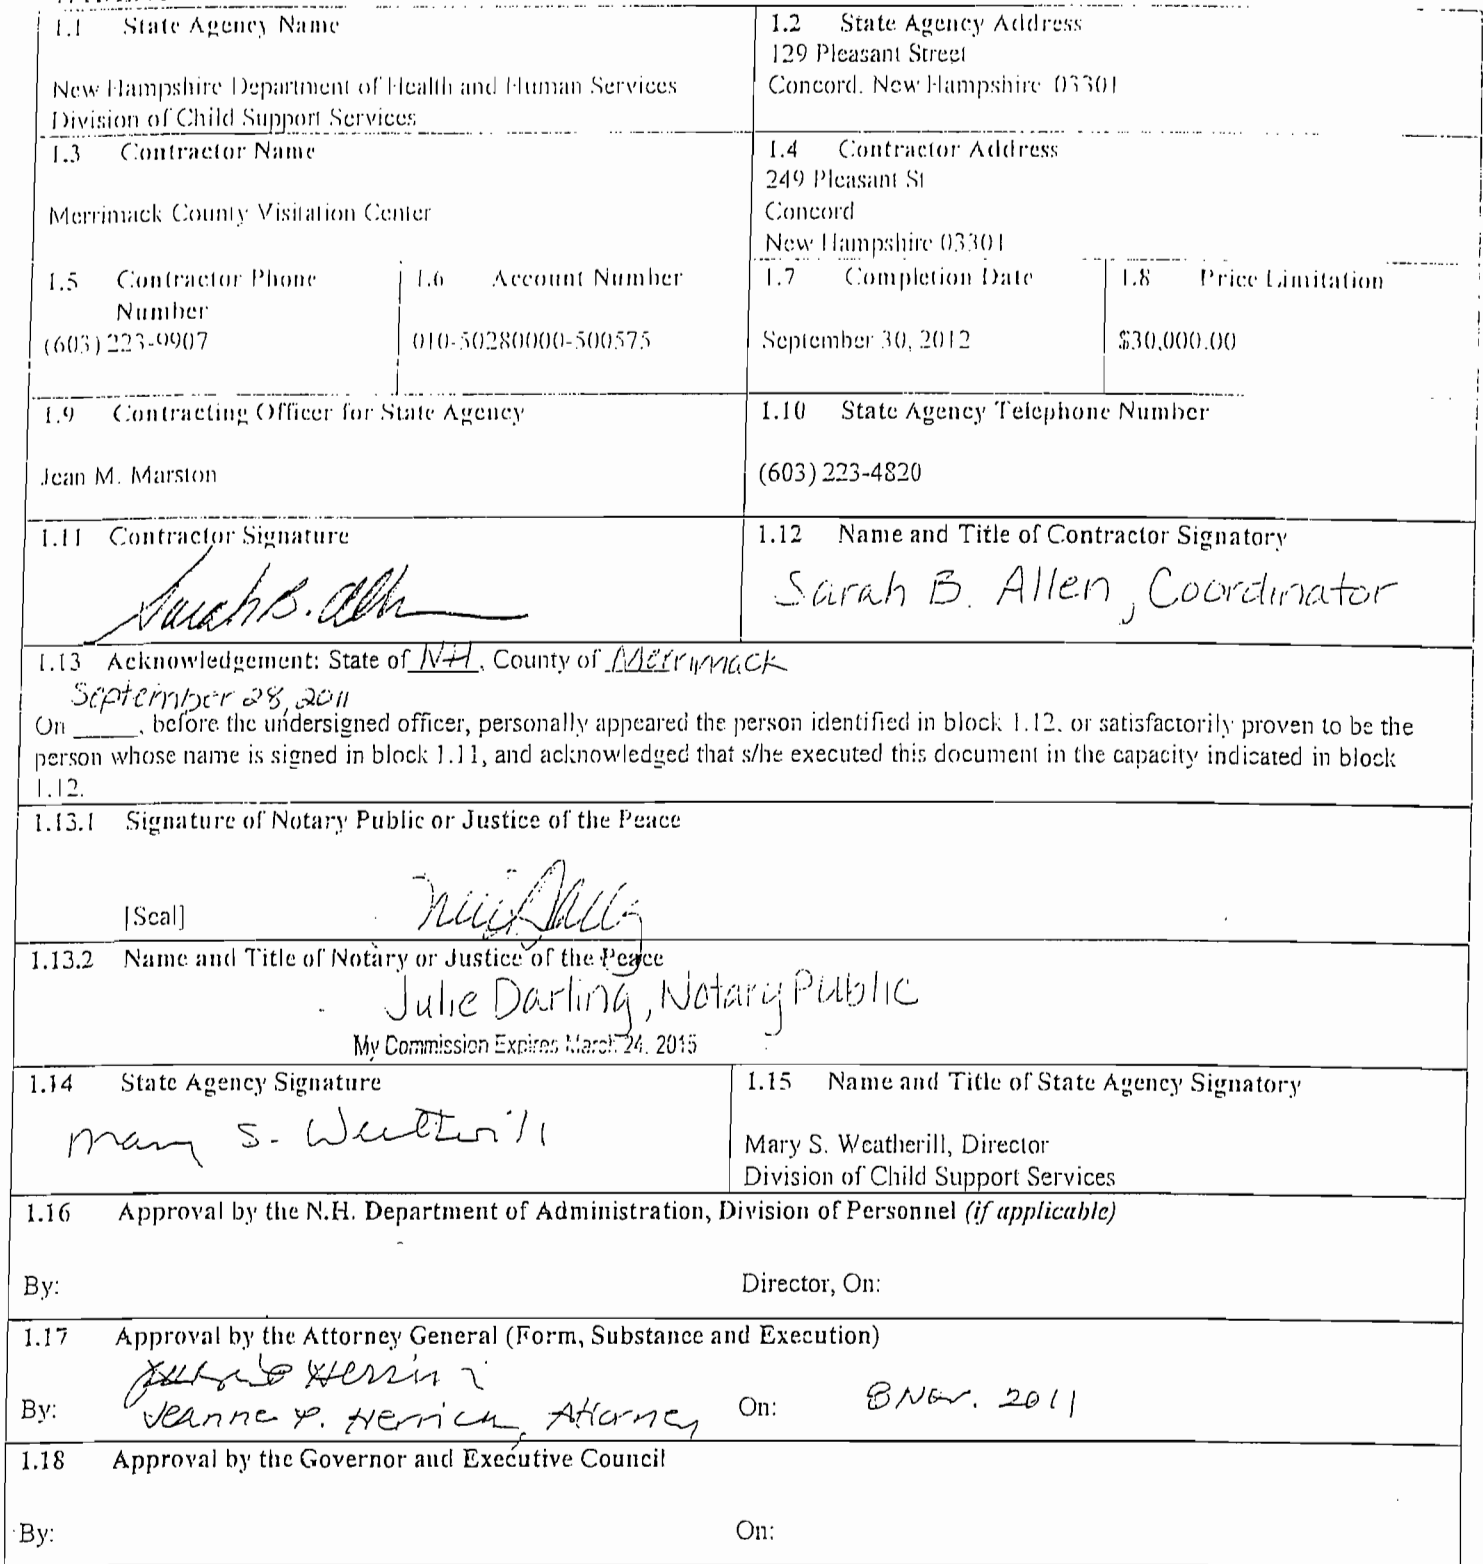 1.1 State Agency Name
New Hampshire Department of Health and Human Services
Division of Child Support Services
1.2 State Agency Address
129 Pleasant Street
Concord, New Hampshire 03301
1.3 Contractor Name
Merrimack County Visitation Center
1.4 Contractor Address
249 Pleasant St
Concord
New Hampshire 03301
1.5 Contractor Phone
Number
(603) 223-9907
1.6 Account Number
010-50280000-500575
1.7 Completion Date
September 30, 2012
1.8 Price Limitation
$30,000.00
1.9 Contracting Officer for State Agency
Jean M. Marston
1.10 State Agency Telephone Number
(603) 223-4820
1.11 Contractor Signature
Sarah B. Allen
1.12 Name and Title of Contractor Signatory
Sarah B. Allen, Coordinator
1.13 Acknowledgement: State of NH, County of Merrimack
September 28, 2011
On _____, before the undersigned officer, personally appeared the person identified in block 1.12. or satisfactorily proven to be the
person whose name is signed in block 1.11, and acknowledged that s/he executed this document in the capacity indicated in block
1.12.
1.13.1 Signature of Notary Public or Justice of the Peace
[Seal]
1.13.2 Name and Title of Notary or Justice of the Peace
Julie Darling, Notary Public
My Commission Expires March 24, 2015
1.14 State Agency Signature
Mary S. Weatherill
1.15 Name and Title of State Agency Signatory
Mary S. Weatherill, Director
Division of Child Support Services
1.16 Approval by the N.H. Department of Administration, Division of Personnel (if applicable)
By: Director, On:
1.17 Approval by the Attorney General (Form, Substance and Execution)
By: Jeanne P. Herrick, Attorney On: 8 Nov. 2011
1.18 Approval by the Governor and Executive Council
By: On: